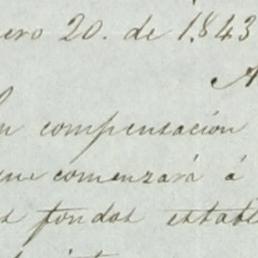 ero 20. de 1.843
A
compensacion
ue comenzará á
s fondos estable